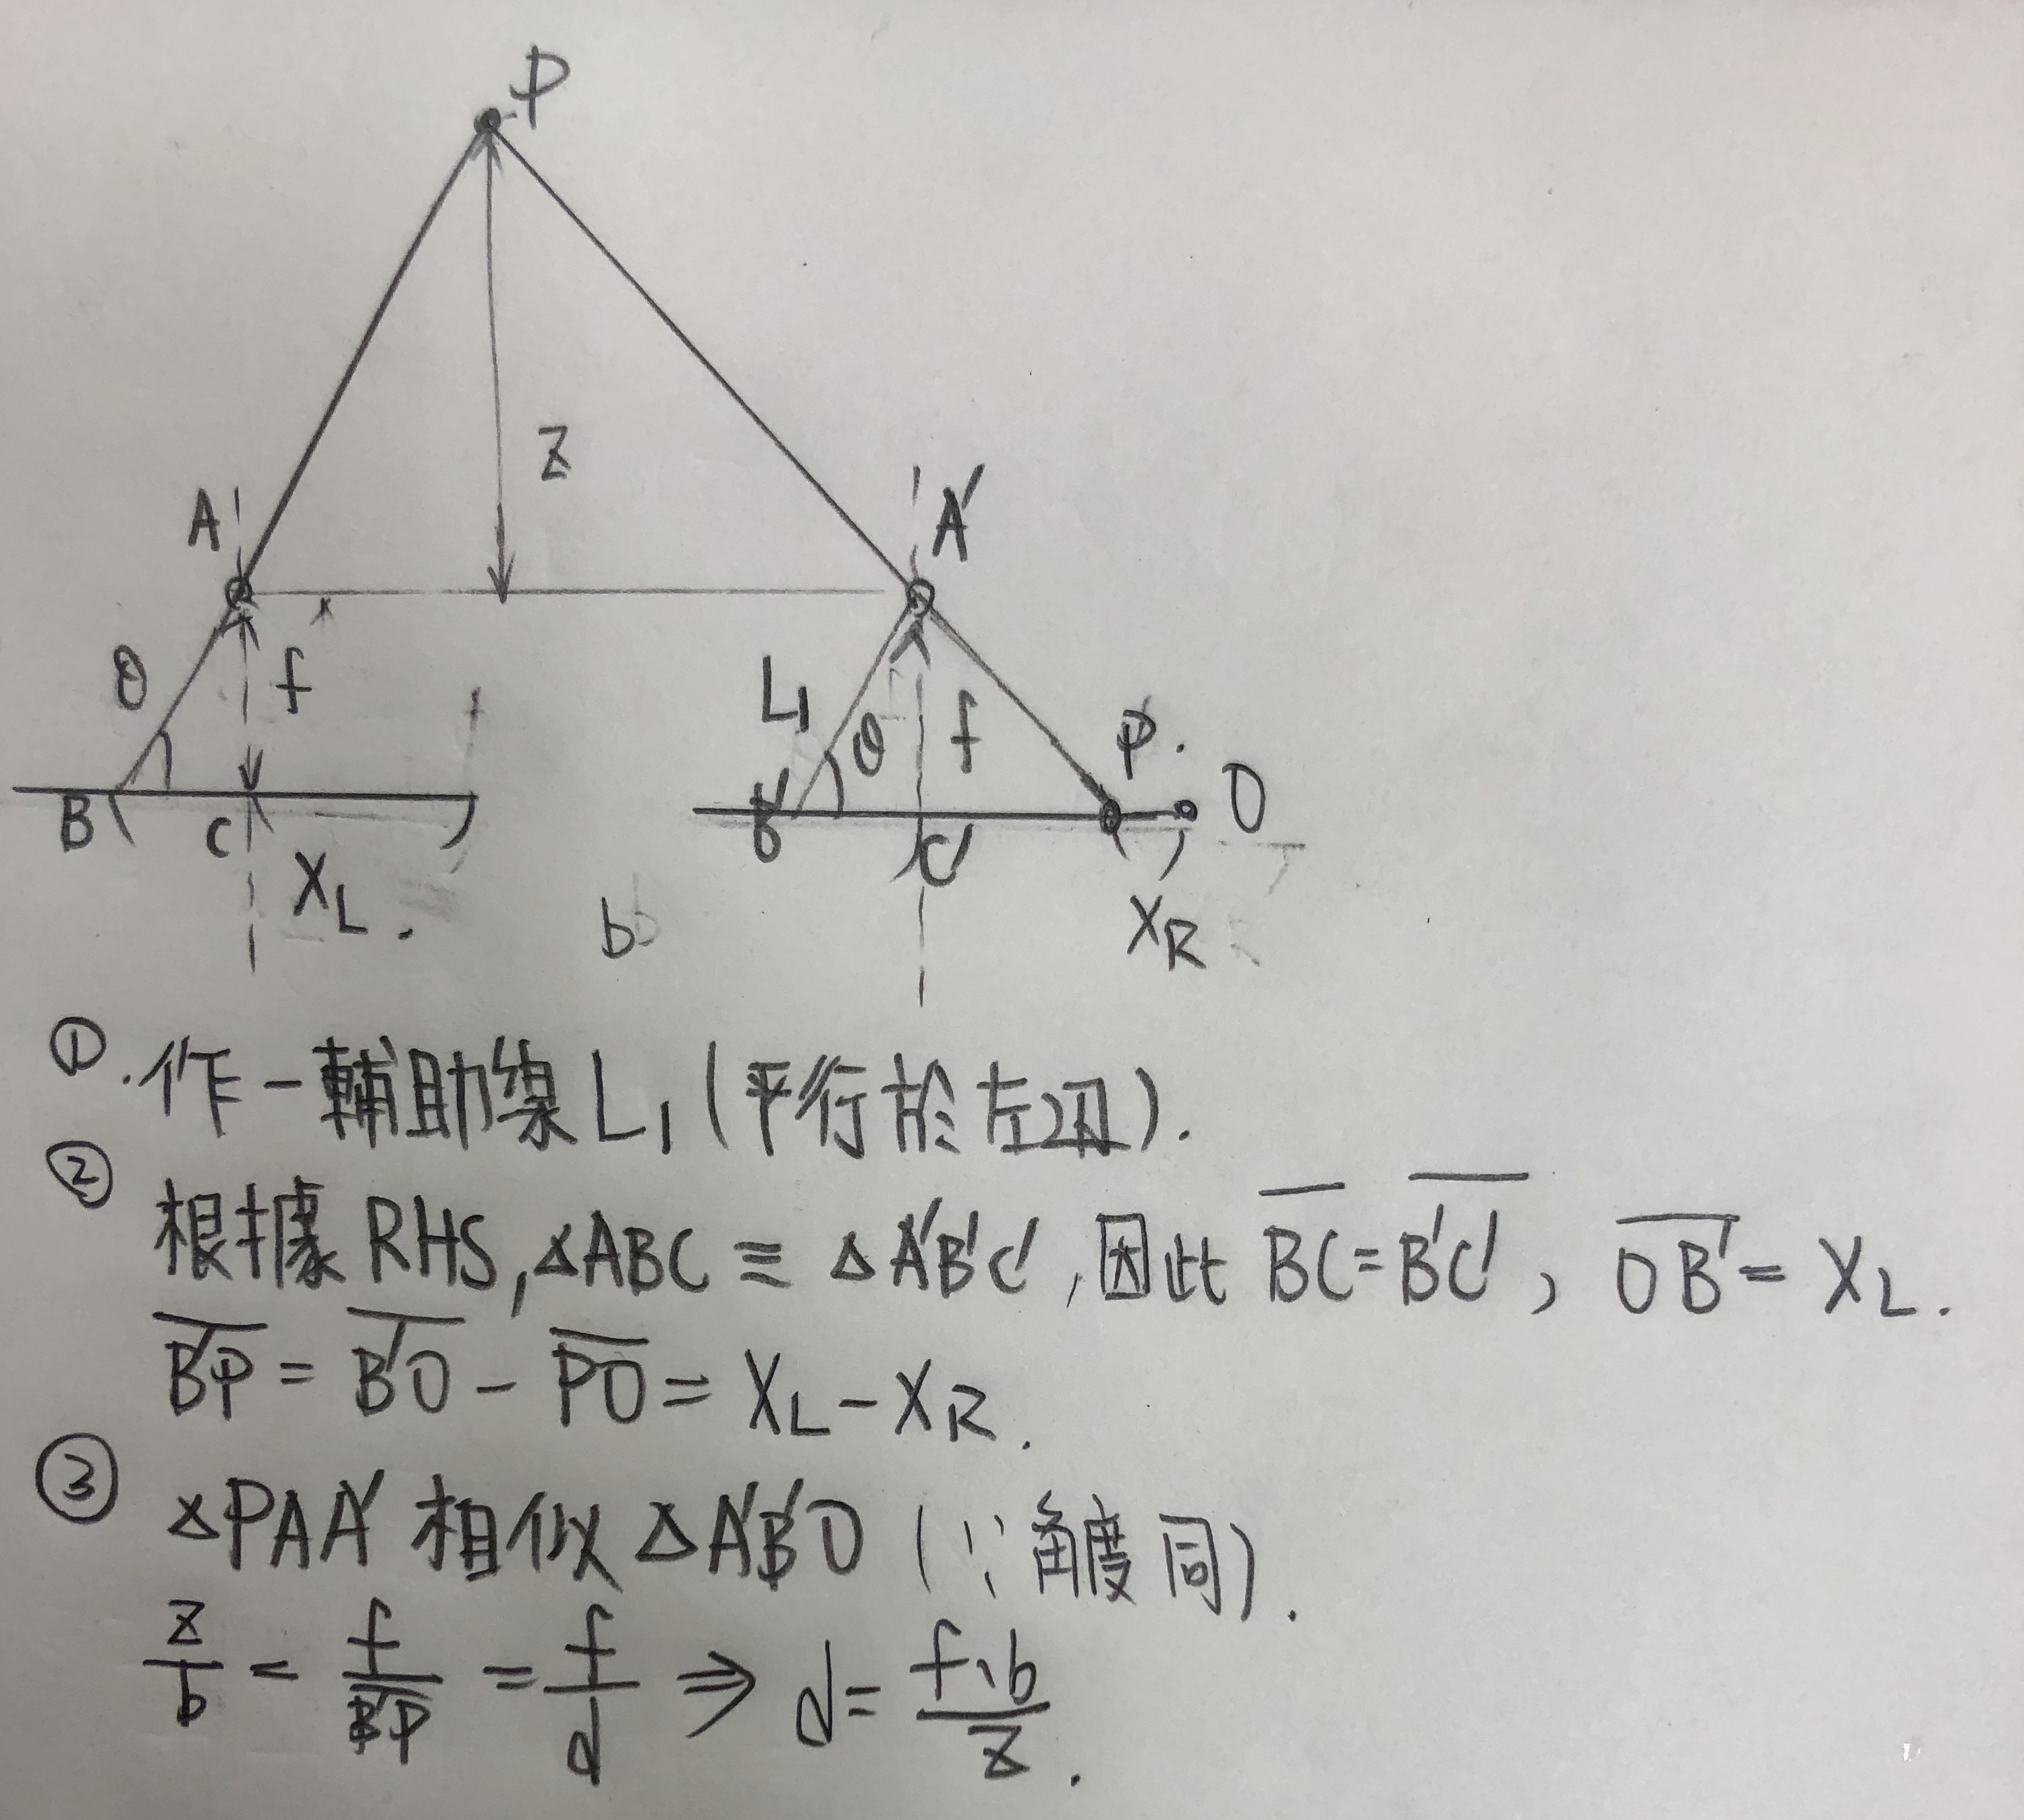 P
Z
A A'
θ f L₁ θ f P. O
B C B' C'
X_L. b X_R
①.作一輔助線L₁(平行於左邊).
② 根據RHS,△ABC ≡ △A'B'C',因此 \overline{BC}=\overline{B'C'}, \overline{OB'}=X_L.
\overline{B'P}=\overline{B'O}-\overline{PO}=X_L-X_R.
③ △PAA' 相似 △A'B'O (∵角度同).
\frac{z}{b}=\frac{f}{\overline{B'P}}=\frac{f}{d} ⇒ d=\frac{f·b}{z}.